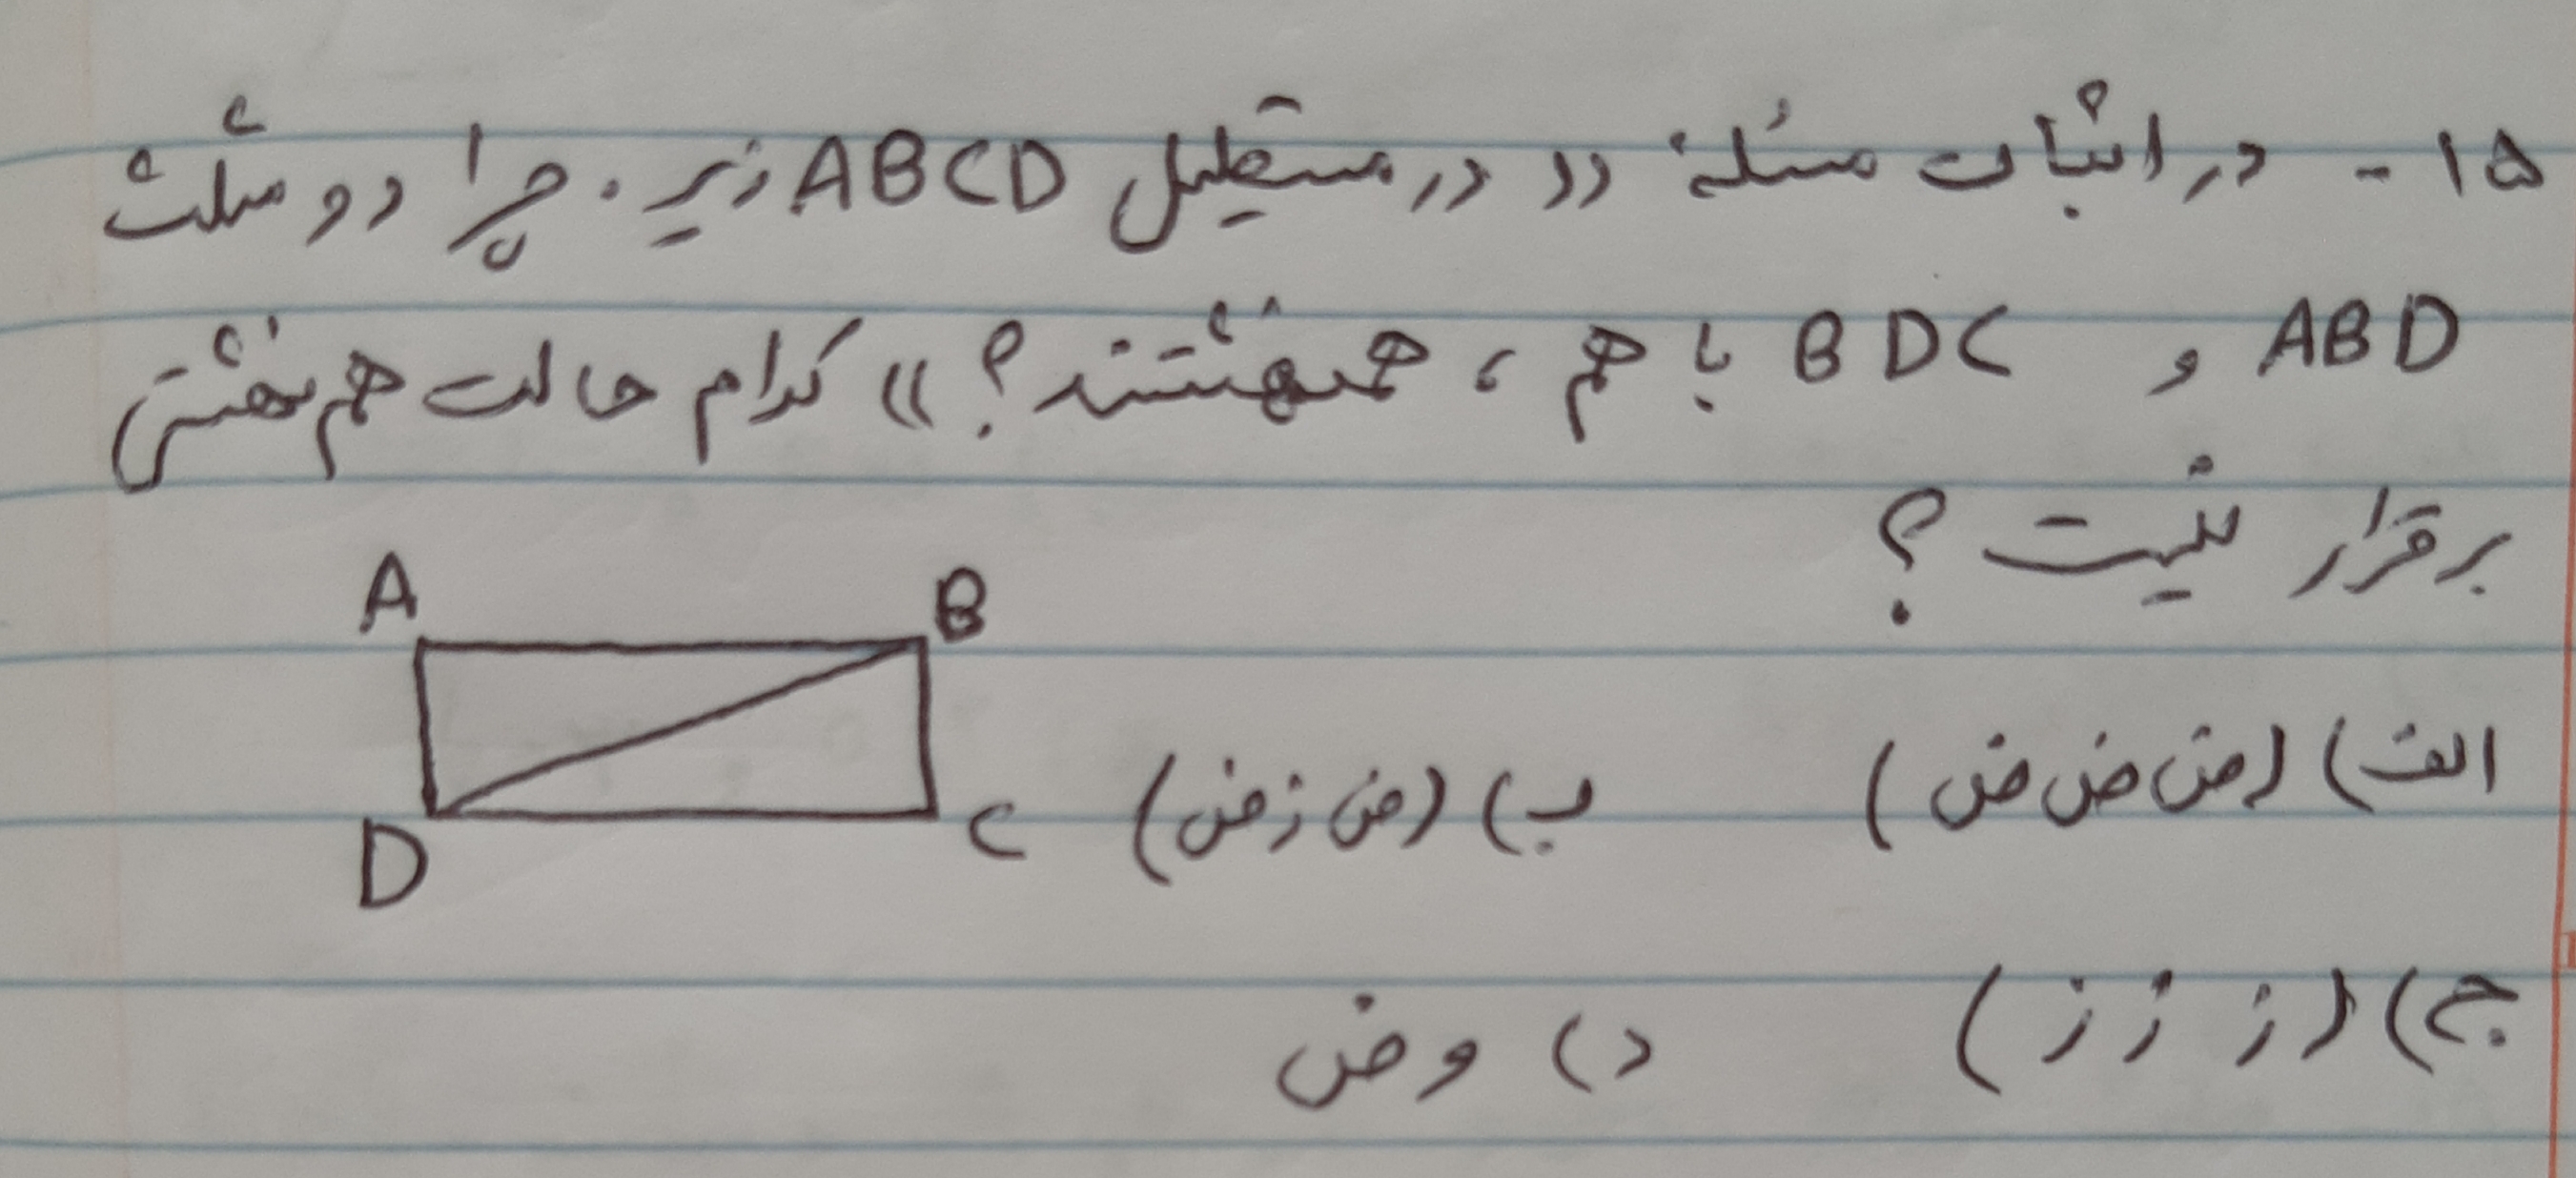 ۱۵- در اثبات مسئلهٔ «در مستطیل ABCD زیر. چرا دو مثلث
ABD و BDC با هم، همنهشتند؟» کدام حالت هم نهشتی
برقرار نیست؟
A B
الف) (ض ض ض) ب) (ض ز ض)
D C
ج) (ز ز ز) د) و ض